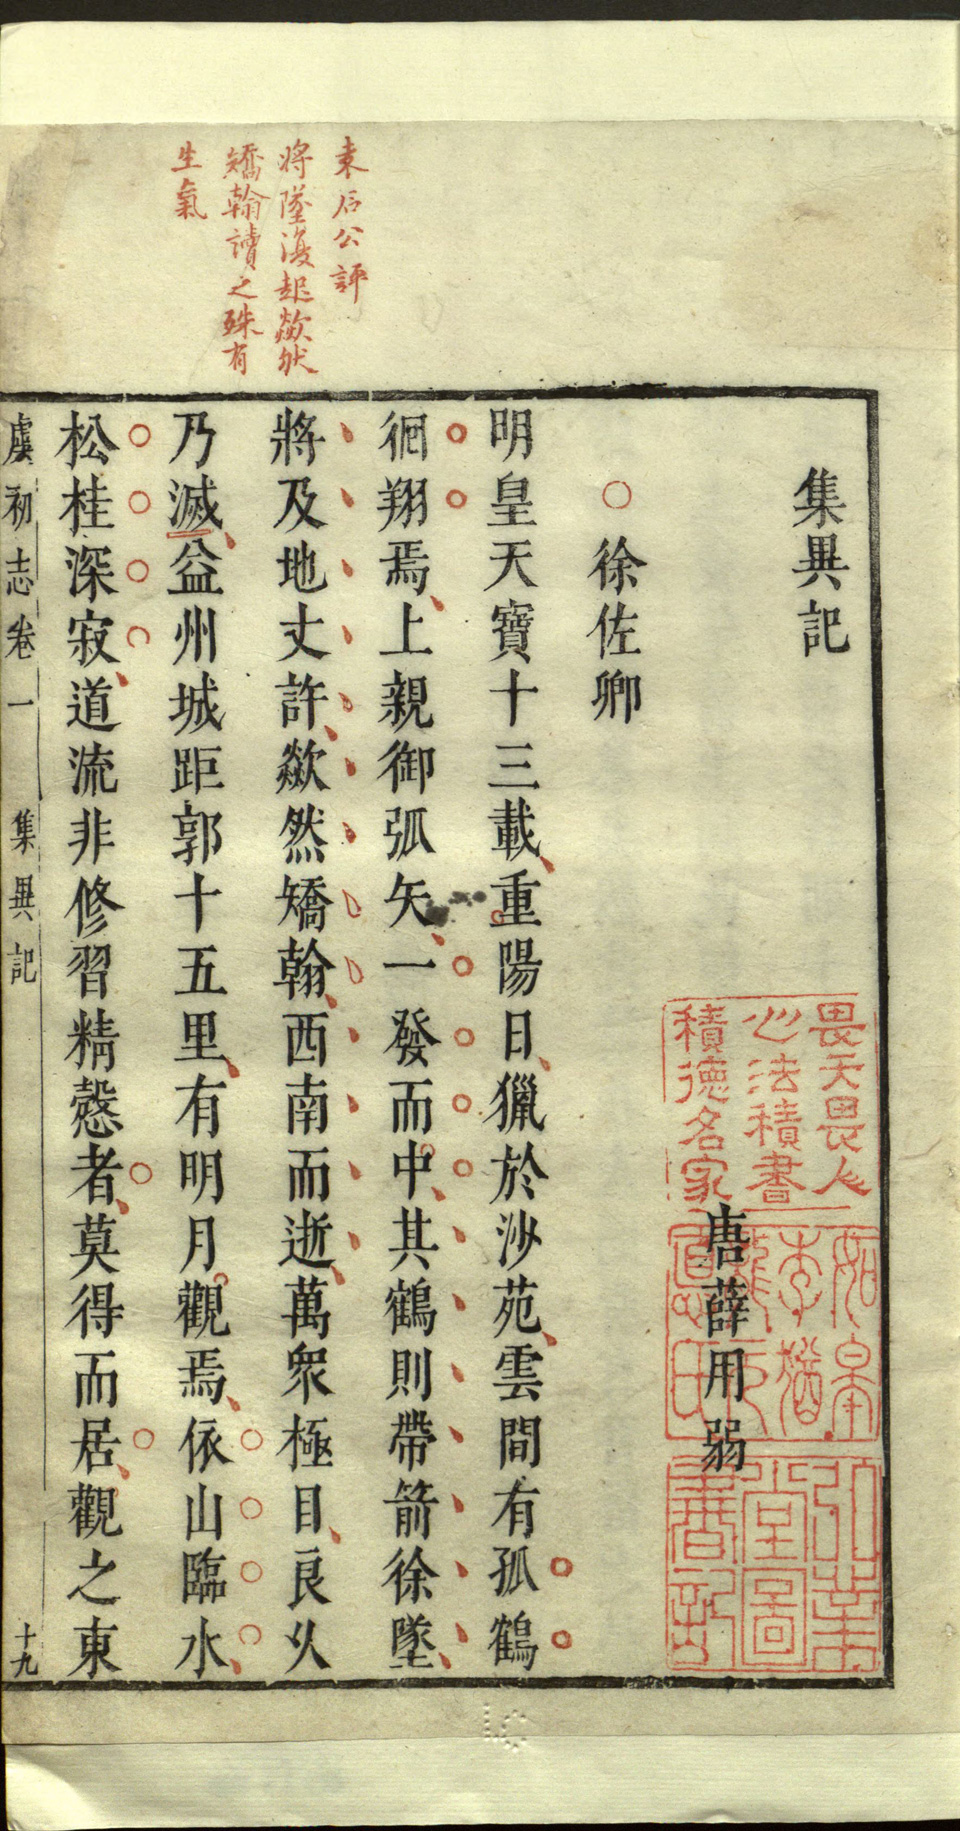 袁石公評
將墜復起歘然
矯翰讀之殊有
生氣
集異記
唐薛用弱
畏天畏人
心法積書
積德名家
○徐佐卿
明皇天寶十三載重陽日獵於沙苑雲間有孤鶴
徊翔焉上親御弧矢一發而中其鶴則帶箭徐墜
將及地丈許歘然矯翰西南而逝萬衆極目良久
乃滅益州城距郭十五里有明月觀焉依山臨水
松桂深寂道流非修習精慤者莫得而居觀之東
虞初志卷一 集異記 十九
LC